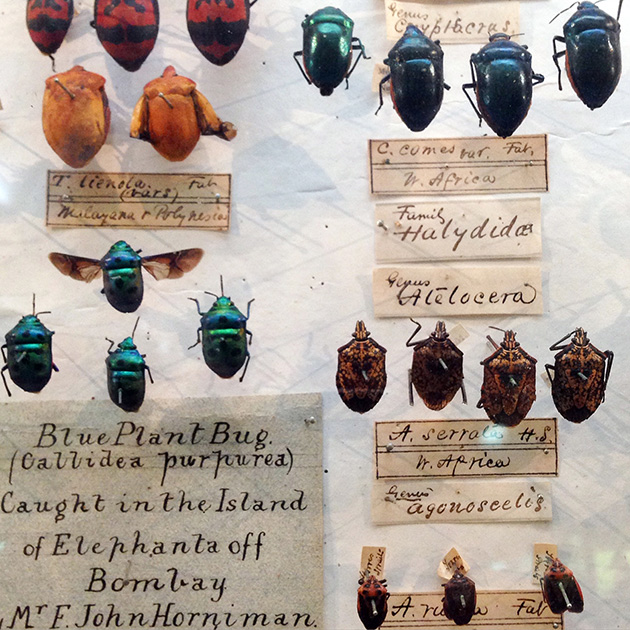 Genus
Cryptacrus.
C. comes var. Fab.
W. Africa
Family
Halydidae
Genus
Atelocera
A. serrata H.S.
W. Africa
Genus
agonoscelis.
A. Fab.
T. Fab.
(vars)
Malayana & Polynesia
Blue Plant Bug.
(Callidea purpurea)
Caught in the Island
of Elephanta off
Bombay
Mr F. John Horniman.